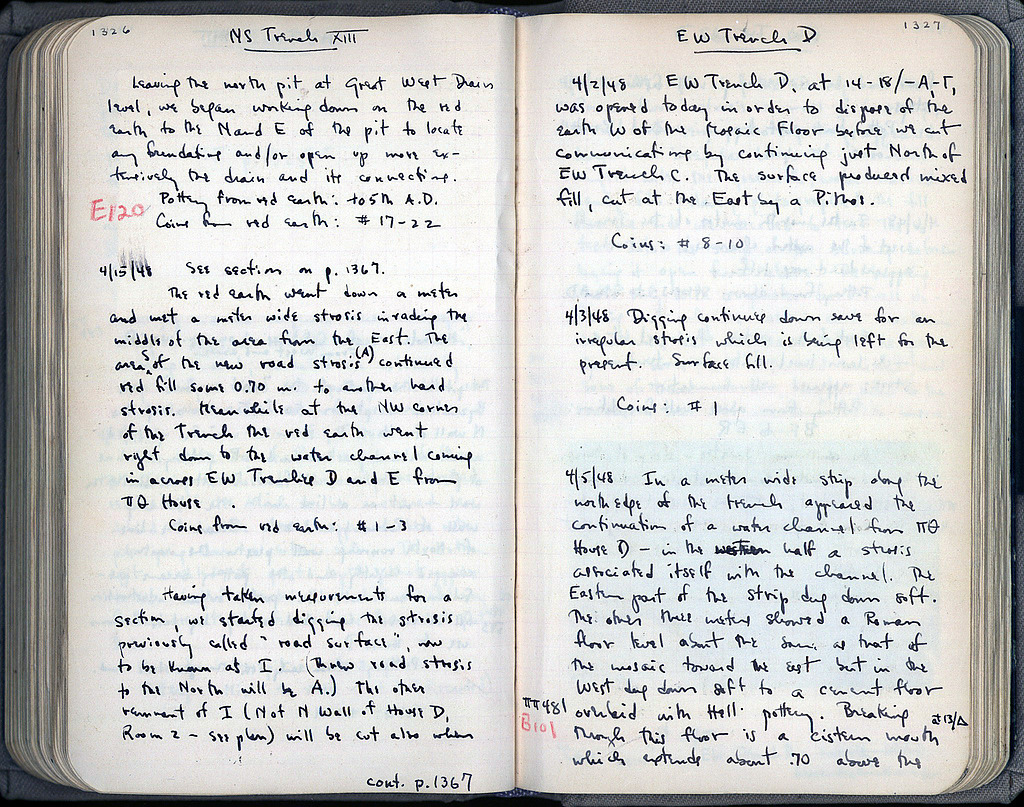 1326
NS Trench XIII
Leaving the north pit at Great West Drain
level, we began working down on the red
earth to the N and E of the pit to locate
any foundations and/or open up more ex-
tensively the drain and its connections.
E120
Pottery from red earth: to 5th A.D.
Coins from red earth: #17-22
4/15/48 See section on p. 1367.
The red earth went down a meter
and met a meter wide strosis invading the
middle of the area from the East. The
area S of the new road strosis (A) continued
red fill some 0.70 m. to another hard
strosis. Meanwhile at the NW corner
of the Trench the red earth went
right down to the water channel coming
in across EW Trenches D and E from
ΠΘ House.
Coins from red earth: #1-3
Having taken measurements for a
section, we started digging the strosis
previously called "road surface", now
to be known as I. (The new road strosis
to the North will be A.) The other
remnant of I (Not N Wall of House D,
Room 2 - see plan) will be cut also when
cont. p.1367
1327
EW Trench D
4/2/48 EW Trench D, at 14-18/-A-Γ,
was opened today in order to dispose of the
earth W of the Mosaic Floor before we cut
communications by continuing just North of
EW Trench C. The surface produced mixed
fill, cut at the East by a Pithos.
Coins: #8-10
4/3/48 Digging continued down save for an
irregular strosis which is being left for the
present. Surface fill.
Coins: #1
4/5/48 In a meter wide strip along the
north edge of the trench appeared the
continuation of a water channel from ΠΘ
House D - in the western half a strosis
associated itself with the channel. The
Eastern part of the strip dug down soft.
The other three meters showed a Roman
floor level about the same as that of
the mosaic toward the east but in the
West dug down soft to a cement floor
ΠΠ481
overlaid with Hell. pottery. Breaking at 13/Δ
B101
through this floor is a cistern mouth
which extends about .70 above the